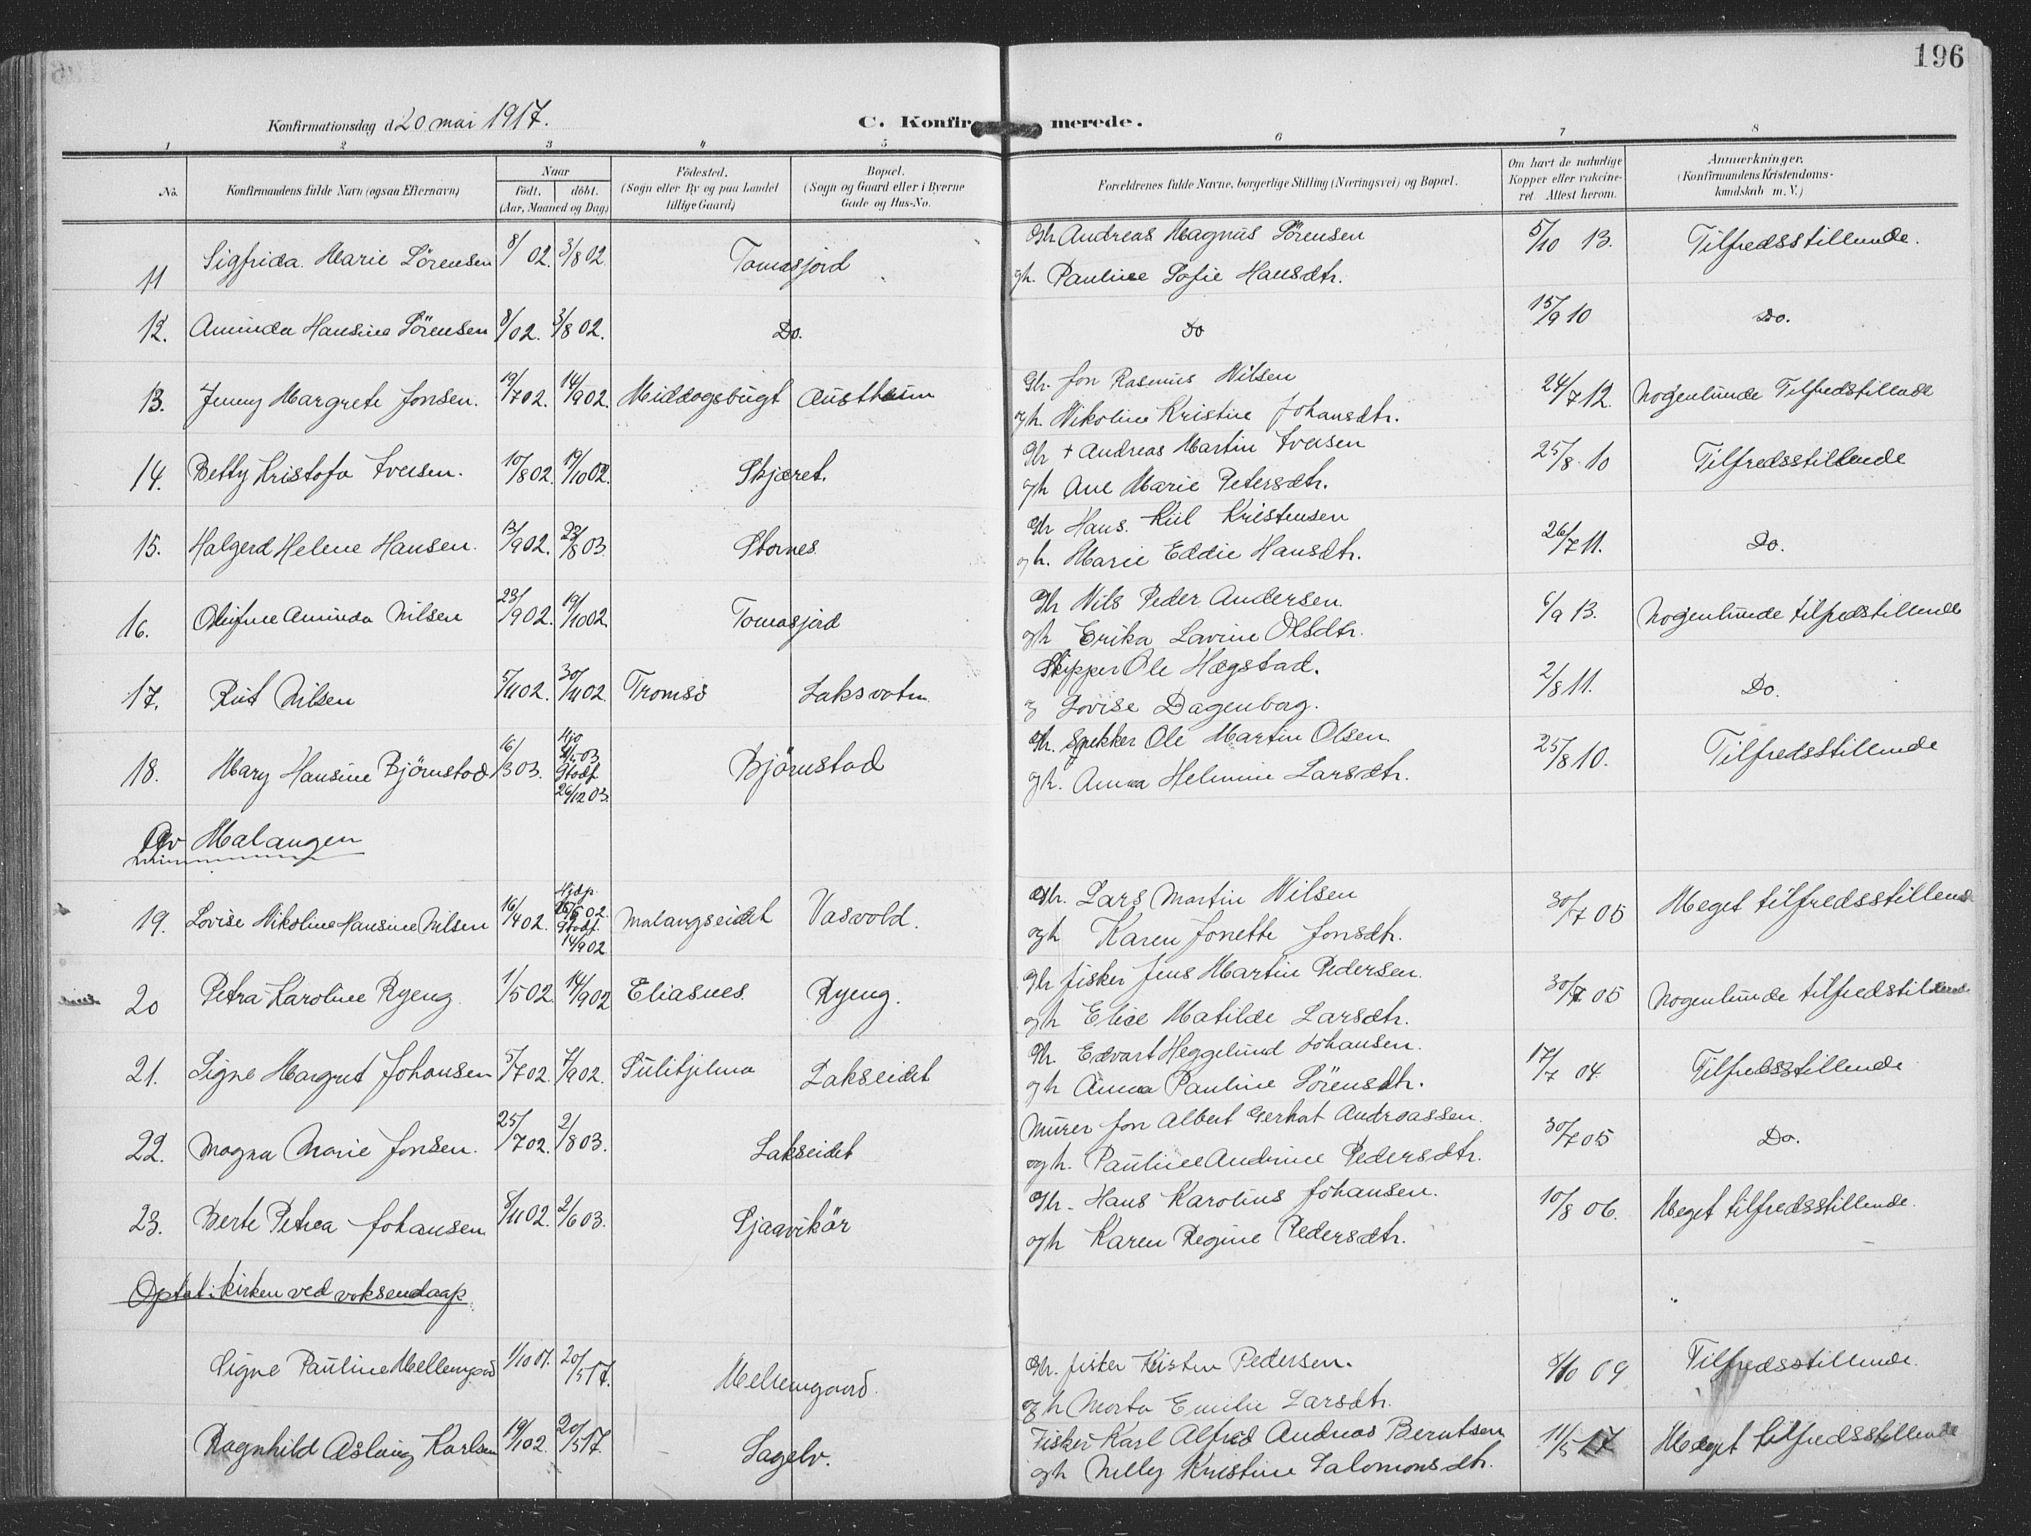 196
Konfirmationsdag d. 20 mai 1917.
C. Konfirmerede.
1 2 3 4 5 6 7 8
No. Konfirmandens fulde Navn (ogsaa Efternavn) Naar födt. döbt. (Aar, Maaned og Dag) Födested. (Sogn eller By og paa Landet tillige Gaard) Bopæl. (Sogn og Gaard eller i Byerne Gade og Hus-No. Forældrenes fulde Navne, borgerlige Stilling (Næringsvei) og Bopæl. Om havt de naturlige Kopper eller vakcineret Attest herom. Anmærkninger. (Konfirmandens Kristendomskundskab m. V.)
11 Sigfrida Marie Sörensen 8/ 02. 3/8 02. Tomasjord Gbr Andreas Magnus Sörensen 5/10 13. Tilfredsstillende.
gh. Pauline Sofie Hansdtr.
12. Aminda Hansine Sörensen 8/02. 3/8 02. Do. Do 15/9 10 Do.
13. Jenny Margrete Jonsen. 19/7 02. 14/9 02. Middagsbugt Austheim Gbr. Jon Rasmus Nilsen 24/7 12. Nogenlunde Tilfredstillende
og h. Nikoline Kristine Johansdtr.
14. Betty Kristofa Iversen. 10/8 02. 19/10 02. Skjæret. Gbr + Andreas Martin Iversen 25/8 10 Tilfredsstillende
og h Ane Marie Petersdtr.
15. Halgerd Helene Hansen. 13/9 02. 23/8 03. Stornes Gbr Hans Kiil Kristensen 26/7 11. Do.
og h. Marie Eddie Hansdtr.
16. Olufine Aminda Nilsen 23/9 02. 19/10 02. Tomasjord Gbr Nils Peder Andersen 6/9 13. Nogenlunde tilfredstillende
og h Erika Lavine Olsdtr.
17. Rut Nilsen 5/11 02. 30/11 02. Tromsö Laksvatn Skipper Ole Hægstad. 2/8 11. Do.
og Lovise Dagenborg.
18. Mary Hansine Björnstad 16/3 03. Hjd 03 Stadf. 26/12 03. Björnstad Gbr. Snekker Ole Martin Olsen 25/8 10. Tilfredsstillende
og h. Anna Helmine Larsdtr.
Av Malangen
19. Lovise Nikoline Hansine Nilsen 16/4 02. Hjdp. 02 Stadf. 14/9 02 Malangseidet Vasvold. Gbr. Lars Martin Nilsen 30/7 05 Meget tilfredsstillende
og h Karen Jonette Jonsdtr.
20 Petra Karoline Ryeng 1/5 02. 14/9 02 Eliasnes. Ryeng. Gbr fisker Jens Martin Pedersen. 30/7 05 Nogenlunde tilfredstillende
og h Elise Matilde Larsdtr.
21. Signe Margret Johansen 5/7 02. 7/9 02. Sulitjelma Lakseidet Gbr. Edvart Heggelund Johansen. 17/7 04. Tilfredsstillende
og h Anna Pauline Sörensdtr.
22. Magna Marie Jonsen. 25/7 02. 2/8 03. Lakseidet Murer Jon Albert Gerhat Andreassen. 30/7 05 Do.
og h. Pauline Andrine Pedersdtr.
23. Berte Petrea Johansen 8/11 02. 2/6 03. Sjaavikör Gbr. Hans Karolius Johansen. 10/8 06. Meget tilfredsstillende.
og h Karen Regine Pedersdtr.
Optat i kirken ved voksendaap.
Signe Pauline Mellemgaard 1/10 01. 20/5 17. Mellemgaard. Gbr. fisker Kristen Pedersen. 8/10 09 Tilfredsstillende.
og h Marta Emilie Larsdtr.
Ragnhild Aslaug Karlsen 19/1 02. 20/5 17. Sagelv. Fisker Karl Alfred Andreas Berntsen 11/5 17 Meget tilfredsstillende
og h Nelly Kristine Salomonsdtr.